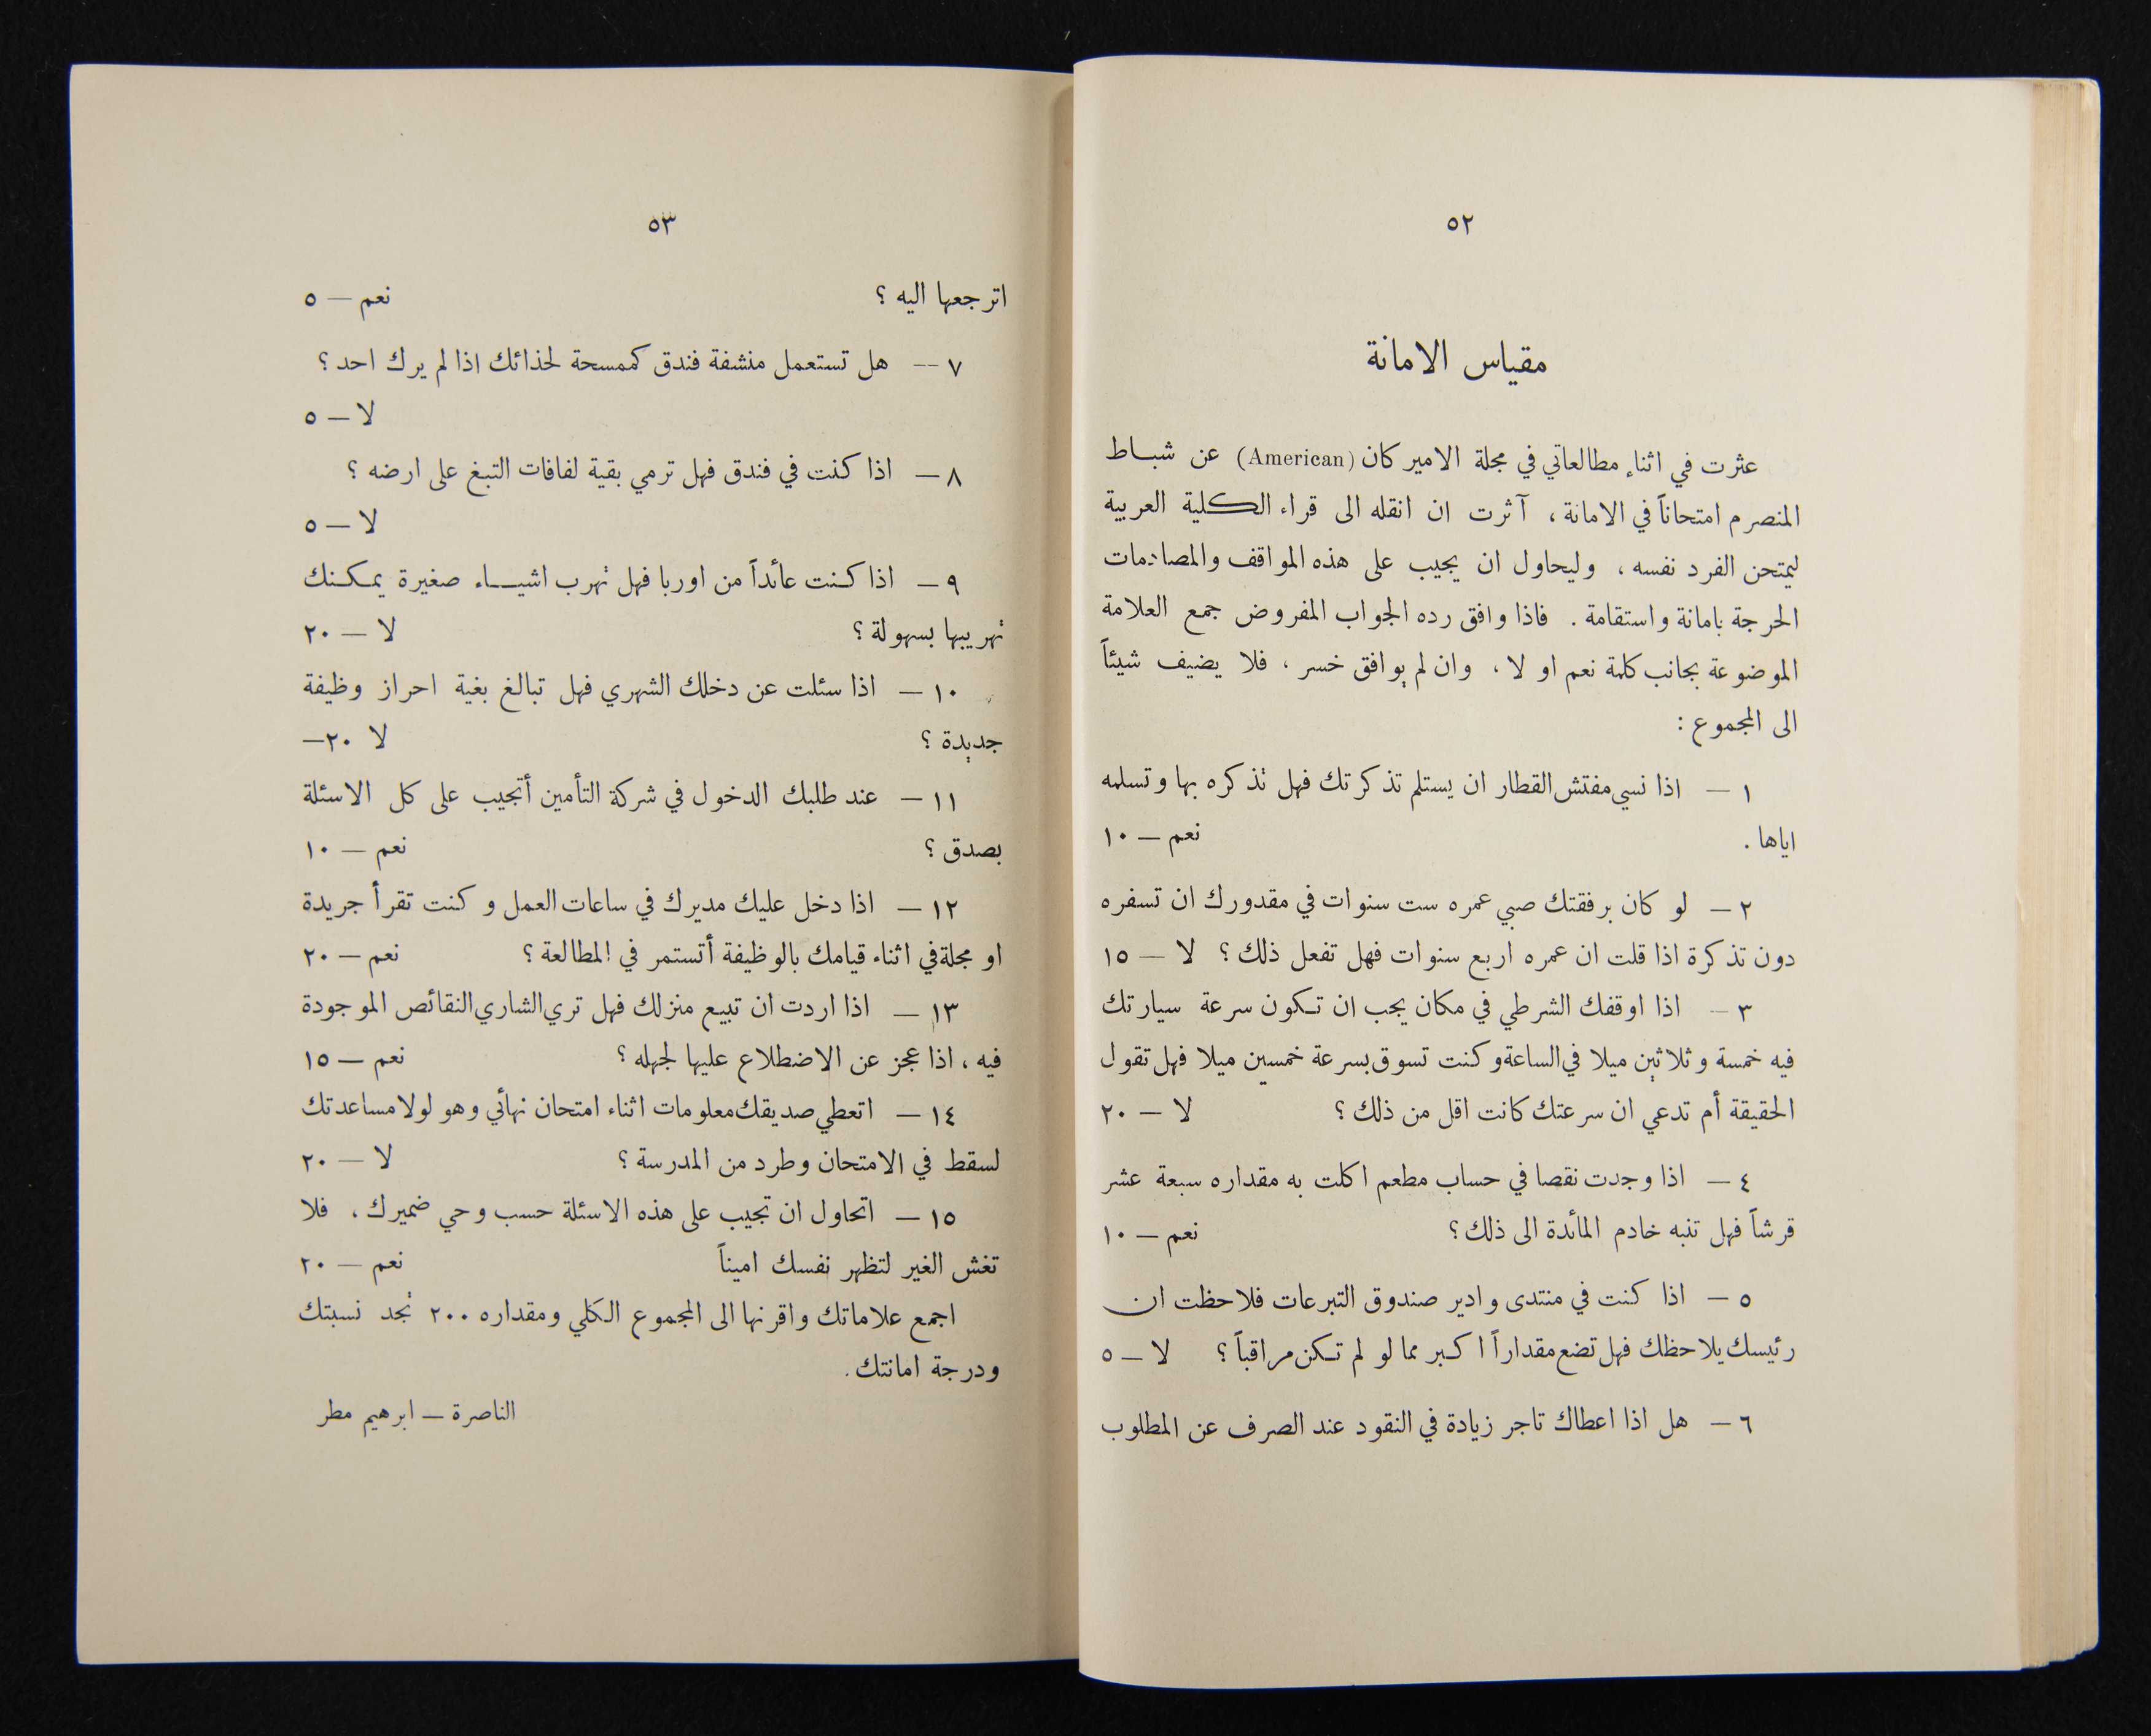 ٥٢
مقياس الامانة
عثرت في اثناء مطالعاتي في مجلة الاميركان (American) عن شباط
المنصرم امتحاناً في الامانة ، آثرت ان انقله الى قراء الكلية العربية
ليمتحن الفرد نفسه ، وليحاول ان يجيب على هذه المواقف والمصادمات
الحرجة بامانة واستقامة . فاذا وافق رده الجواب المفروض جمع العلامة
الموضوعة بجانب كلمة نعم او لا ، وان لم يوافق خسر ، فلا يضيف شيئاً
الى المجموع :
١ — اذا نسي مفتش القطار ان يستلم تذكرتك فهل تذكره بها وتسلمه
اياها . نعم — ١٠
٢ — لو كان برفقتك صبي عمره ست سنوات في مقدورك ان تسفره
دون تذكرة اذا قلت ان عمره اربع سنوات فهل تفعل ذلك ؟ لا — ١٥
٣ — اذا اوقفك الشرطي في مكان يجب ان تكون سرعة سيارتك
فيه خمسة وثلاثين ميلا في الساعة وكنت تسوق بسرعة خمسين ميلا فهل تقول
الحقيقة أم تدعي ان سرعتك كانت اقل من ذلك ؟ لا — ٢٠
٤ — اذا وجدت نقصا في حساب مطعم اكلت به مقداره سبعة عشر
قرشاً فهل تنبه خادم المائدة الى ذلك ؟ نعم — ١٠
٥ — اذا كنت في منتدى وادير صندوق التبرعات فلاحظت ان
رئيسك يلاحظك فهل تضع مقداراً اكبر مما لو لم تكن مراقباً ؟ لا — ٥
٦ — هل اذا اعطاك تاجر زيادة في النقود عند الصرف عن المطلوب
٥٣
اترجعها اليه ؟ نعم — ٥
٧ — هل تستعمل منشفة فندق كممسحة لحذائك اذا لم يرك احد ؟
لا — ٥
٨ — اذا كنت في فندق فهل ترمي بقية لفافات التبغ على ارضه ؟
لا — ٥
٩ — اذا كنت عائداً من اوربا فهل تهرب اشياء صغيرة يمكنك
تهريبها بسهولة ؟ لا — ٢٠
١٠ — اذا سئلت عن دخلك الشهري فهل تبالغ بغية احراز وظيفة
جديدة ؟ لا ٢٠—
١١ — عند طلبك الدخول في شركة التأمين أتجيب على كل الاسئلة
بصدق ؟ نعم — ١٠
١٢ — اذا دخل عليك مديرك في ساعات العمل وكنت تقرأ جريدة
او مجلة في اثناء قيامك بالوظيفة أتستمر في المطالعة ؟ نعم — ٢٠
١٣ — اذا اردت ان تبيع منزلك فهل تري الشاري النقائص الموجودة
فيه ، اذا عجز عن الاضطلاع عليها لجهله ؟ نعم — ١٥
١٤ — اتعطي صديقك معلومات اثناء امتحان نهائي وهو لولا مساعدتك
لسقط في الامتحان وطرد من المدرسة ؟ لا — ٢٠
١٥ — اتحاول ان تجيب على هذه الاسئلة حسب وحي ضميرك ، فلا
تغش الغير لتظهر نفسك اميناً نعم — ٢٠
اجمع علاماتك واقرنها الى المجموع الكلي ومقداره ٢٠٠ تجد نسبتك
ودرجة امانتك .
الناصرة — ابرهيم مطر